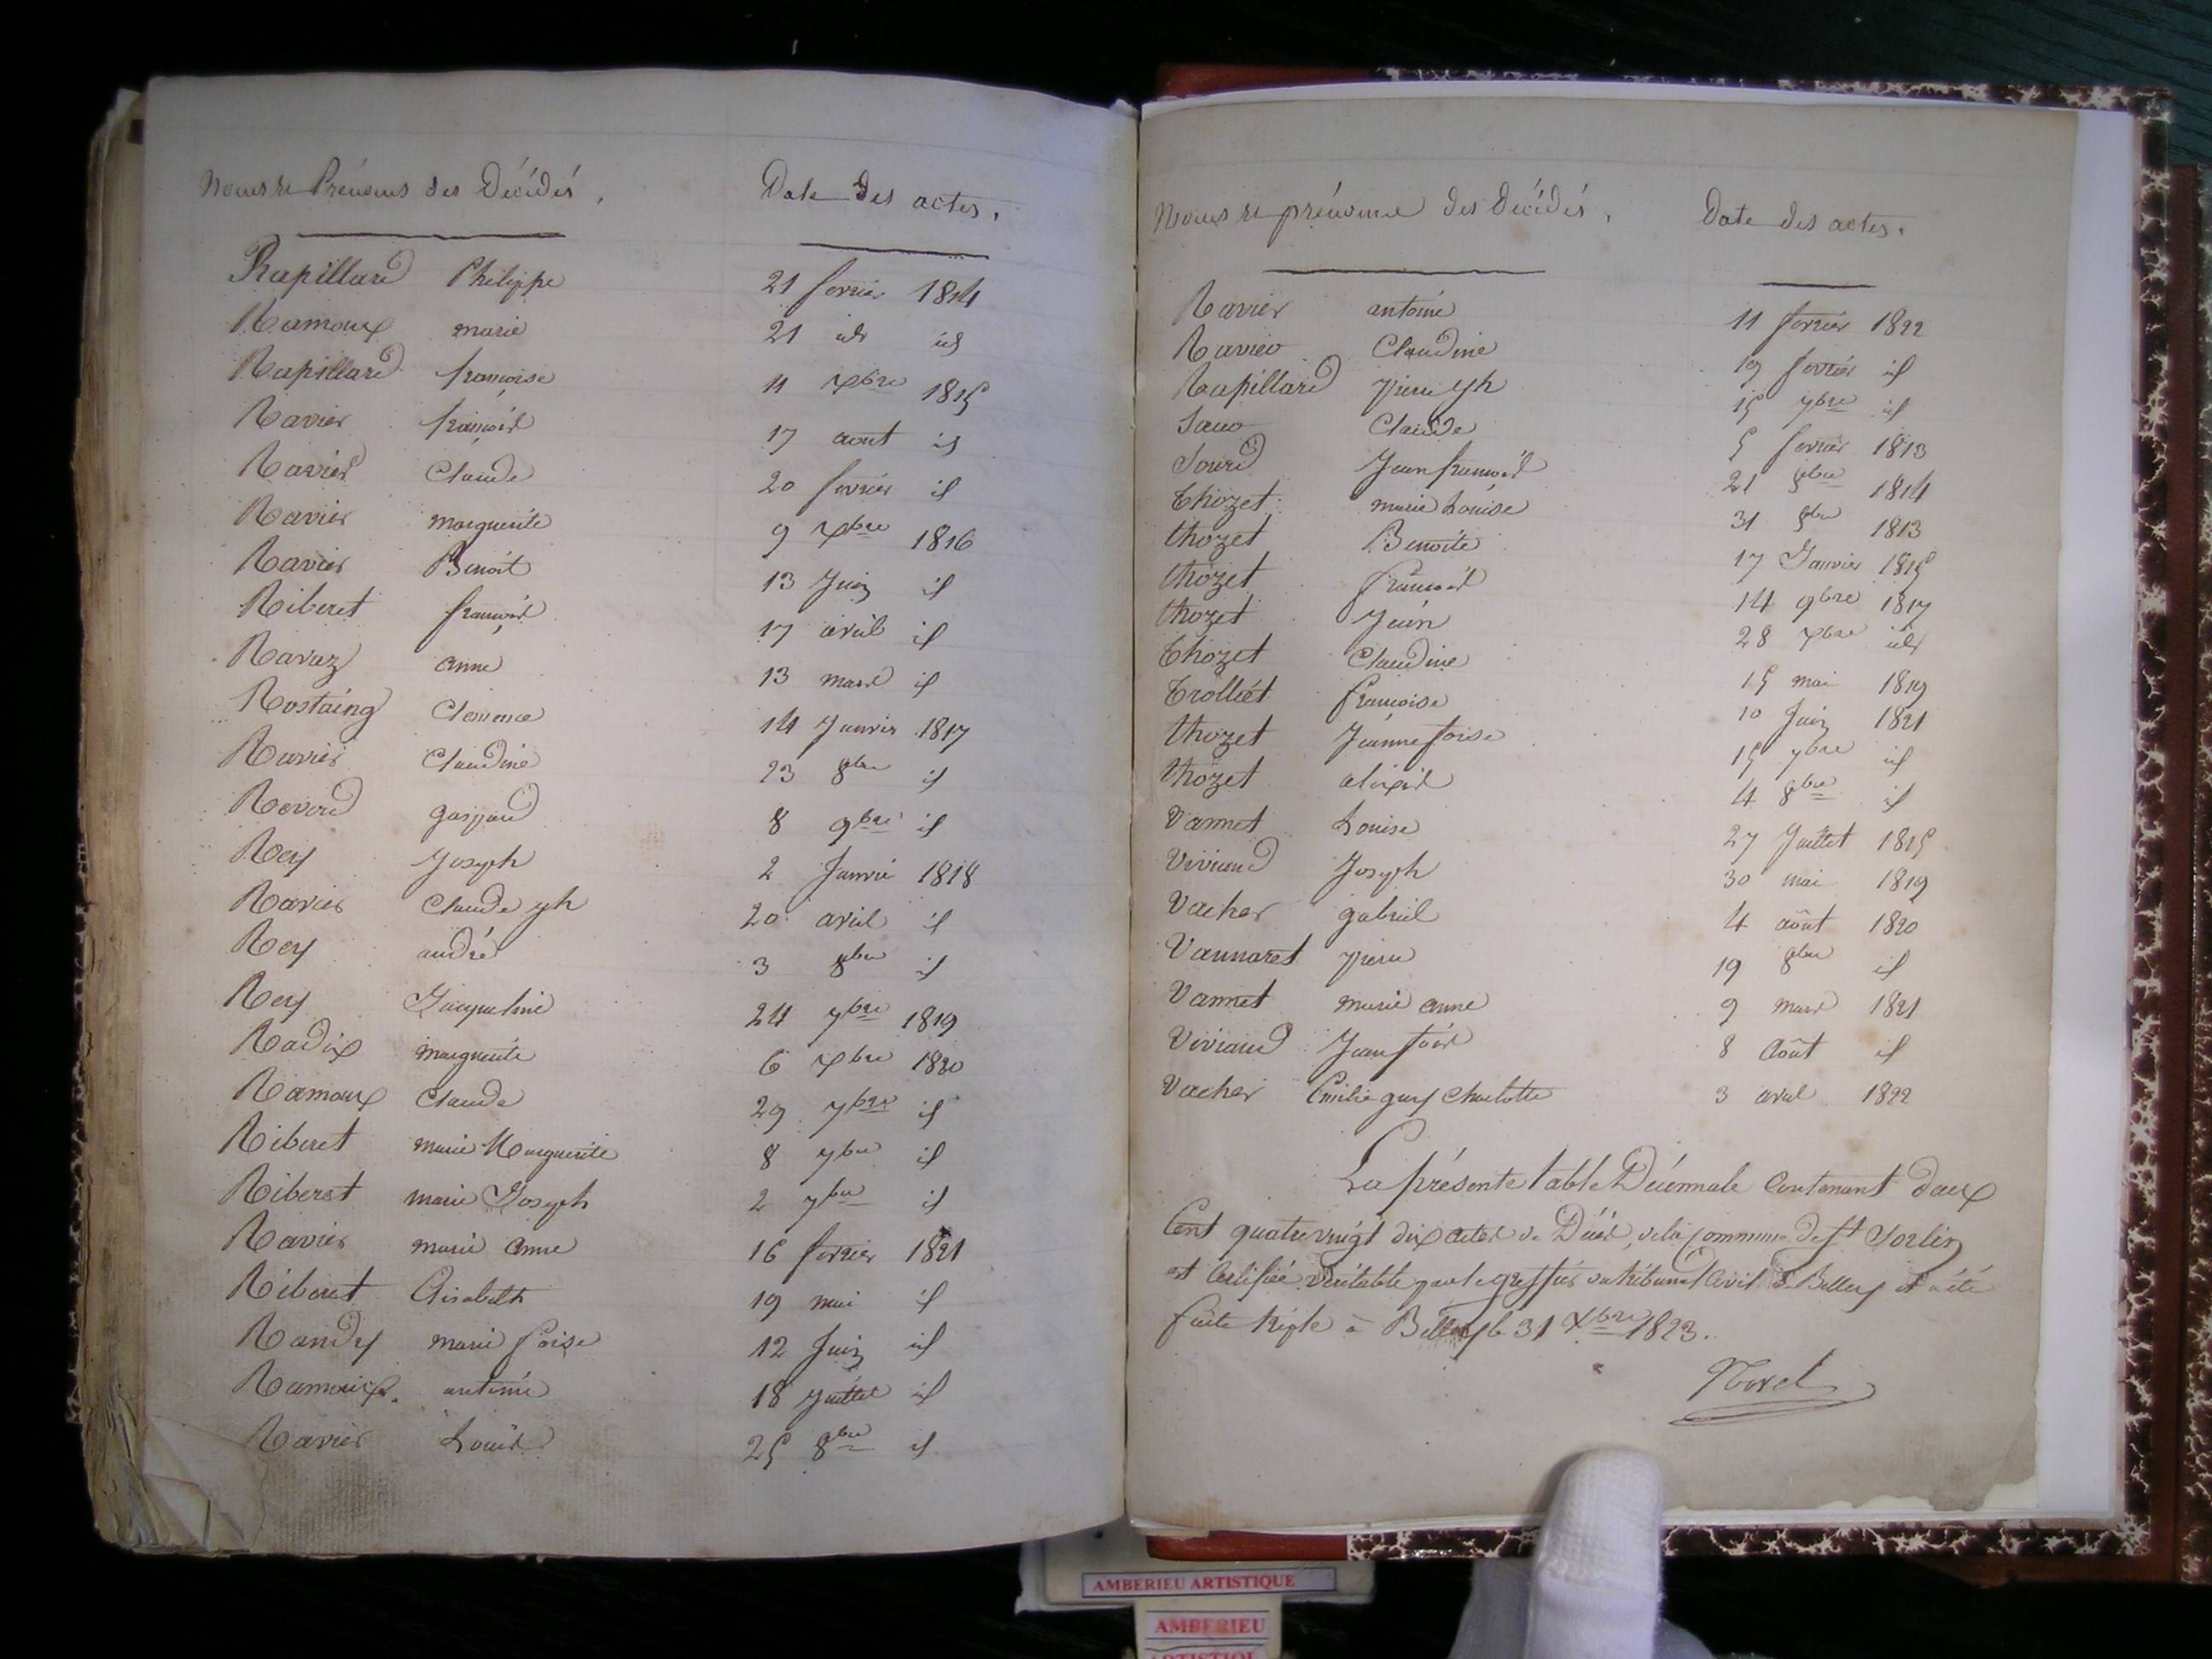 Noms et Prénoms des Décédés, Date des actes.
Rapillard Philippe 21 fevrier 1814
Ramoux marie 21 id id
Rapillard françoise 11 xbre 1815
Ravier françois 17 aout id
Ravier Claude 20 fevrier id
Ravier marguerite 9 xbre 1816
Ravier Benoit 13 Juin id
Riberet françois 17 avril id
Ravaz anne 13 mars id
Rostaing Clemence 14 Janvier 1817
Ravier Claudine 23 8bre id
Reverd gaspard 8 9bre id
Rey Joseph 2 Janvier 1818
Ravier Claude jh 20 avril id
Rey andré 3 8bre id
Rey Jacqueline 24 7bre 1819
Radix marguerite 6 xbre 1820
Ramoux Claude 29 7bre id
Riberet marie Marguerite 8 7bre id
Riberet marie Joseph 2 7bre id
Ravier marie anne 16 fevrier 1821
Riberet Elisabeth 19 mai id
Randy marie foise 12 Juin id
Ramoux antoine 18 Juillet id
Ravier Louis 25 8bre id
Noms et prénoms des Décédés, Date des actes.
Ravier antoine 11 fevrier 1822
Ravier Claudine 19 fevrier id
Rapillard pierre jh 15 7bre id
Claude 5 fevrier 1813
Sourd Jean françois 21 8bre 1814
Thozet marie Louise 31 8bre 1813
thozet Benoite 17 Janvier 1815
thozet françois 14 9bre 1817
thozet Jean 28 xbre id
Thozet Claudine 15 mai 1819
Trolliet françoise 10 Juin 1821
thozet Jeanne foise 15 7bre id
thozet alexis 4 8bre id
Vannet Louise 27 Juillet 1815
Viviand Joseph 30 mai 1819
Vacher gabriel 4 août 1820
Vannaret pierre 19 8bre id
Vannet marie anne 9 mars 1821
Viviand Jean fois 8 Août id
Vacher Emilie guy Charlotte 3 avril 1822
La présente table Décennale contenant deux
Cent quatre vingt dix actes de Décès, de la commune de St Sorlin
est Certifiée Véritable par le greffier du tribunal Civil de Belley et a été
faite triple à Belley le 31 Xbre 1823.
Morel
AMBERIEU ARTISTIQUE
AMBERIEU
ARTISTIQUE